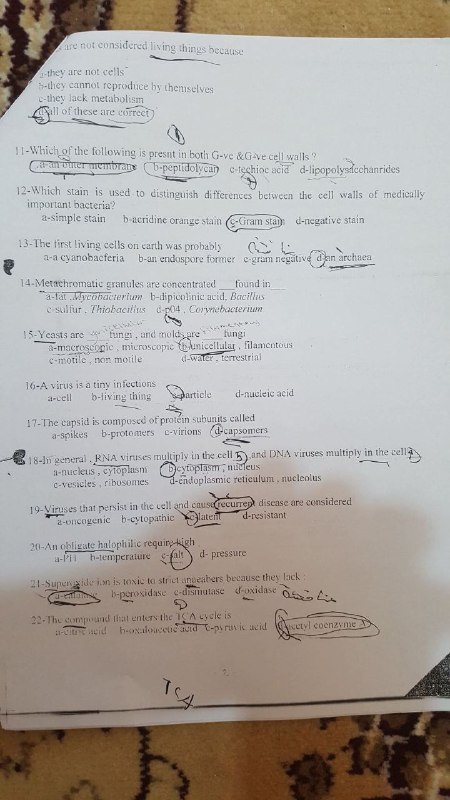 are not considered living things because
a-they are not cells
b-they cannot reproduce by themselves
c-they lack metabolism
d-all of these are correct
11-Which of the following is presnt in both G-ve &G+ve cell walls ?
a-an outer membrane b-peptidolycan c-techioc acid d-lipopolysacchanrides
12-Which stain is used to distinguish differences between the cell walls of medically
important bacteria?
a-simple stain b-acridine orange stain c-Gram stain d-negative stain
13-The first living cells on earth was probably
a-a cyanobacferia b-an endospore former c-gram negative d-an archaea
14-Metachromatic granules are concentrated found in
a-fat ,Mycobacterium b-dipicolinic acid, Bacillus
c-sulfur , Thiobacillus d-po4 , Corynebacterium
15-Yeasts are fungi , and molds are fungi
a-macroscopic , microscopic b-unicellular , filamentous
c-motile , non motile d-water , terrestrial
16-A virus is a tiny infections
a-cell b-living thing c-particle d-nucleic acid
17-The capsid is composed of protein subunits called
a-spikes b-protomers c-virions d-capsomers
18-In general , RNA viruses multiply in the cell , and DNA viruses multiply in the cell
a-nucleus , cytoplasm b-cytoplasm , nucleus
c-vesicles , ribosomes d-endoplasmic reticulum , nucleolus
19-Viruses that persist in the cell and cause recurrent disease are considered
a-oncogenic b-cytopathic c-latent d-resistant
20-An obligate halophilic require high
a-PH b-temperature c-salt d- pressure
21-Superoxide ion is toxic to strict anaeabers because they lack :
a-catalase b-peroxidase c-dismutase d-oxidase
22-The compound that enters the TCA cycle is
a-citric acid b-oxaloacetic acid c-pyruvic acid d-acetyl coenzyme A
2
TCA